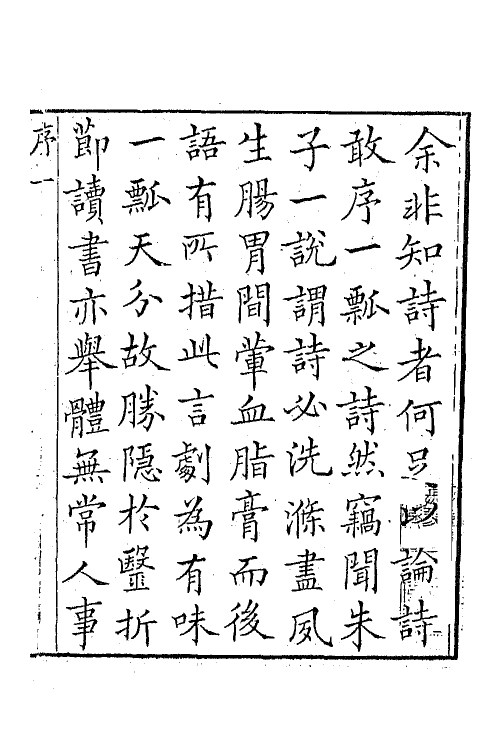 余非知詩者何足論詩
敢序一瓢之詩然竊聞朱
子一說謂詩必洗滌盡夙
生腸胃間葷血脂膏而後
語有所措此言劇為有味
一瓢天分故勝隱於毉折
節讀書亦舉體無常人事
序一